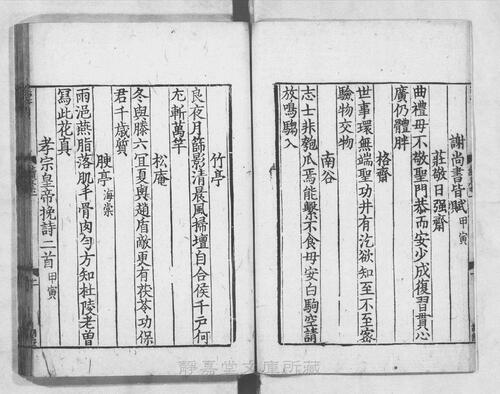 謝尚書皆賦 甲寅
莊敬日强齋
曲禮毋不敬聖門恭而安少成復習貫心
廣仍體胖
格齋
世事環無端聖功井有汔欲知至不至密
驗物交物
南谷
志士非匏瓜焉能繫不食毋安白駒空請
放鳴騶入
竹亭
良夜月篩影清晨風掃壇自合侯千戶何
尤斬萬竿
松庵
冬與滕六冝夏與趙盾敵更有茯苓功保
君千歲質
腴亭 海棠
雨浥燕脂落肌手骨肉勻方知杜陵老曽
冩此花真
孝宗皇帝挽詩二首 甲寅
靜嘉堂文庫所藏